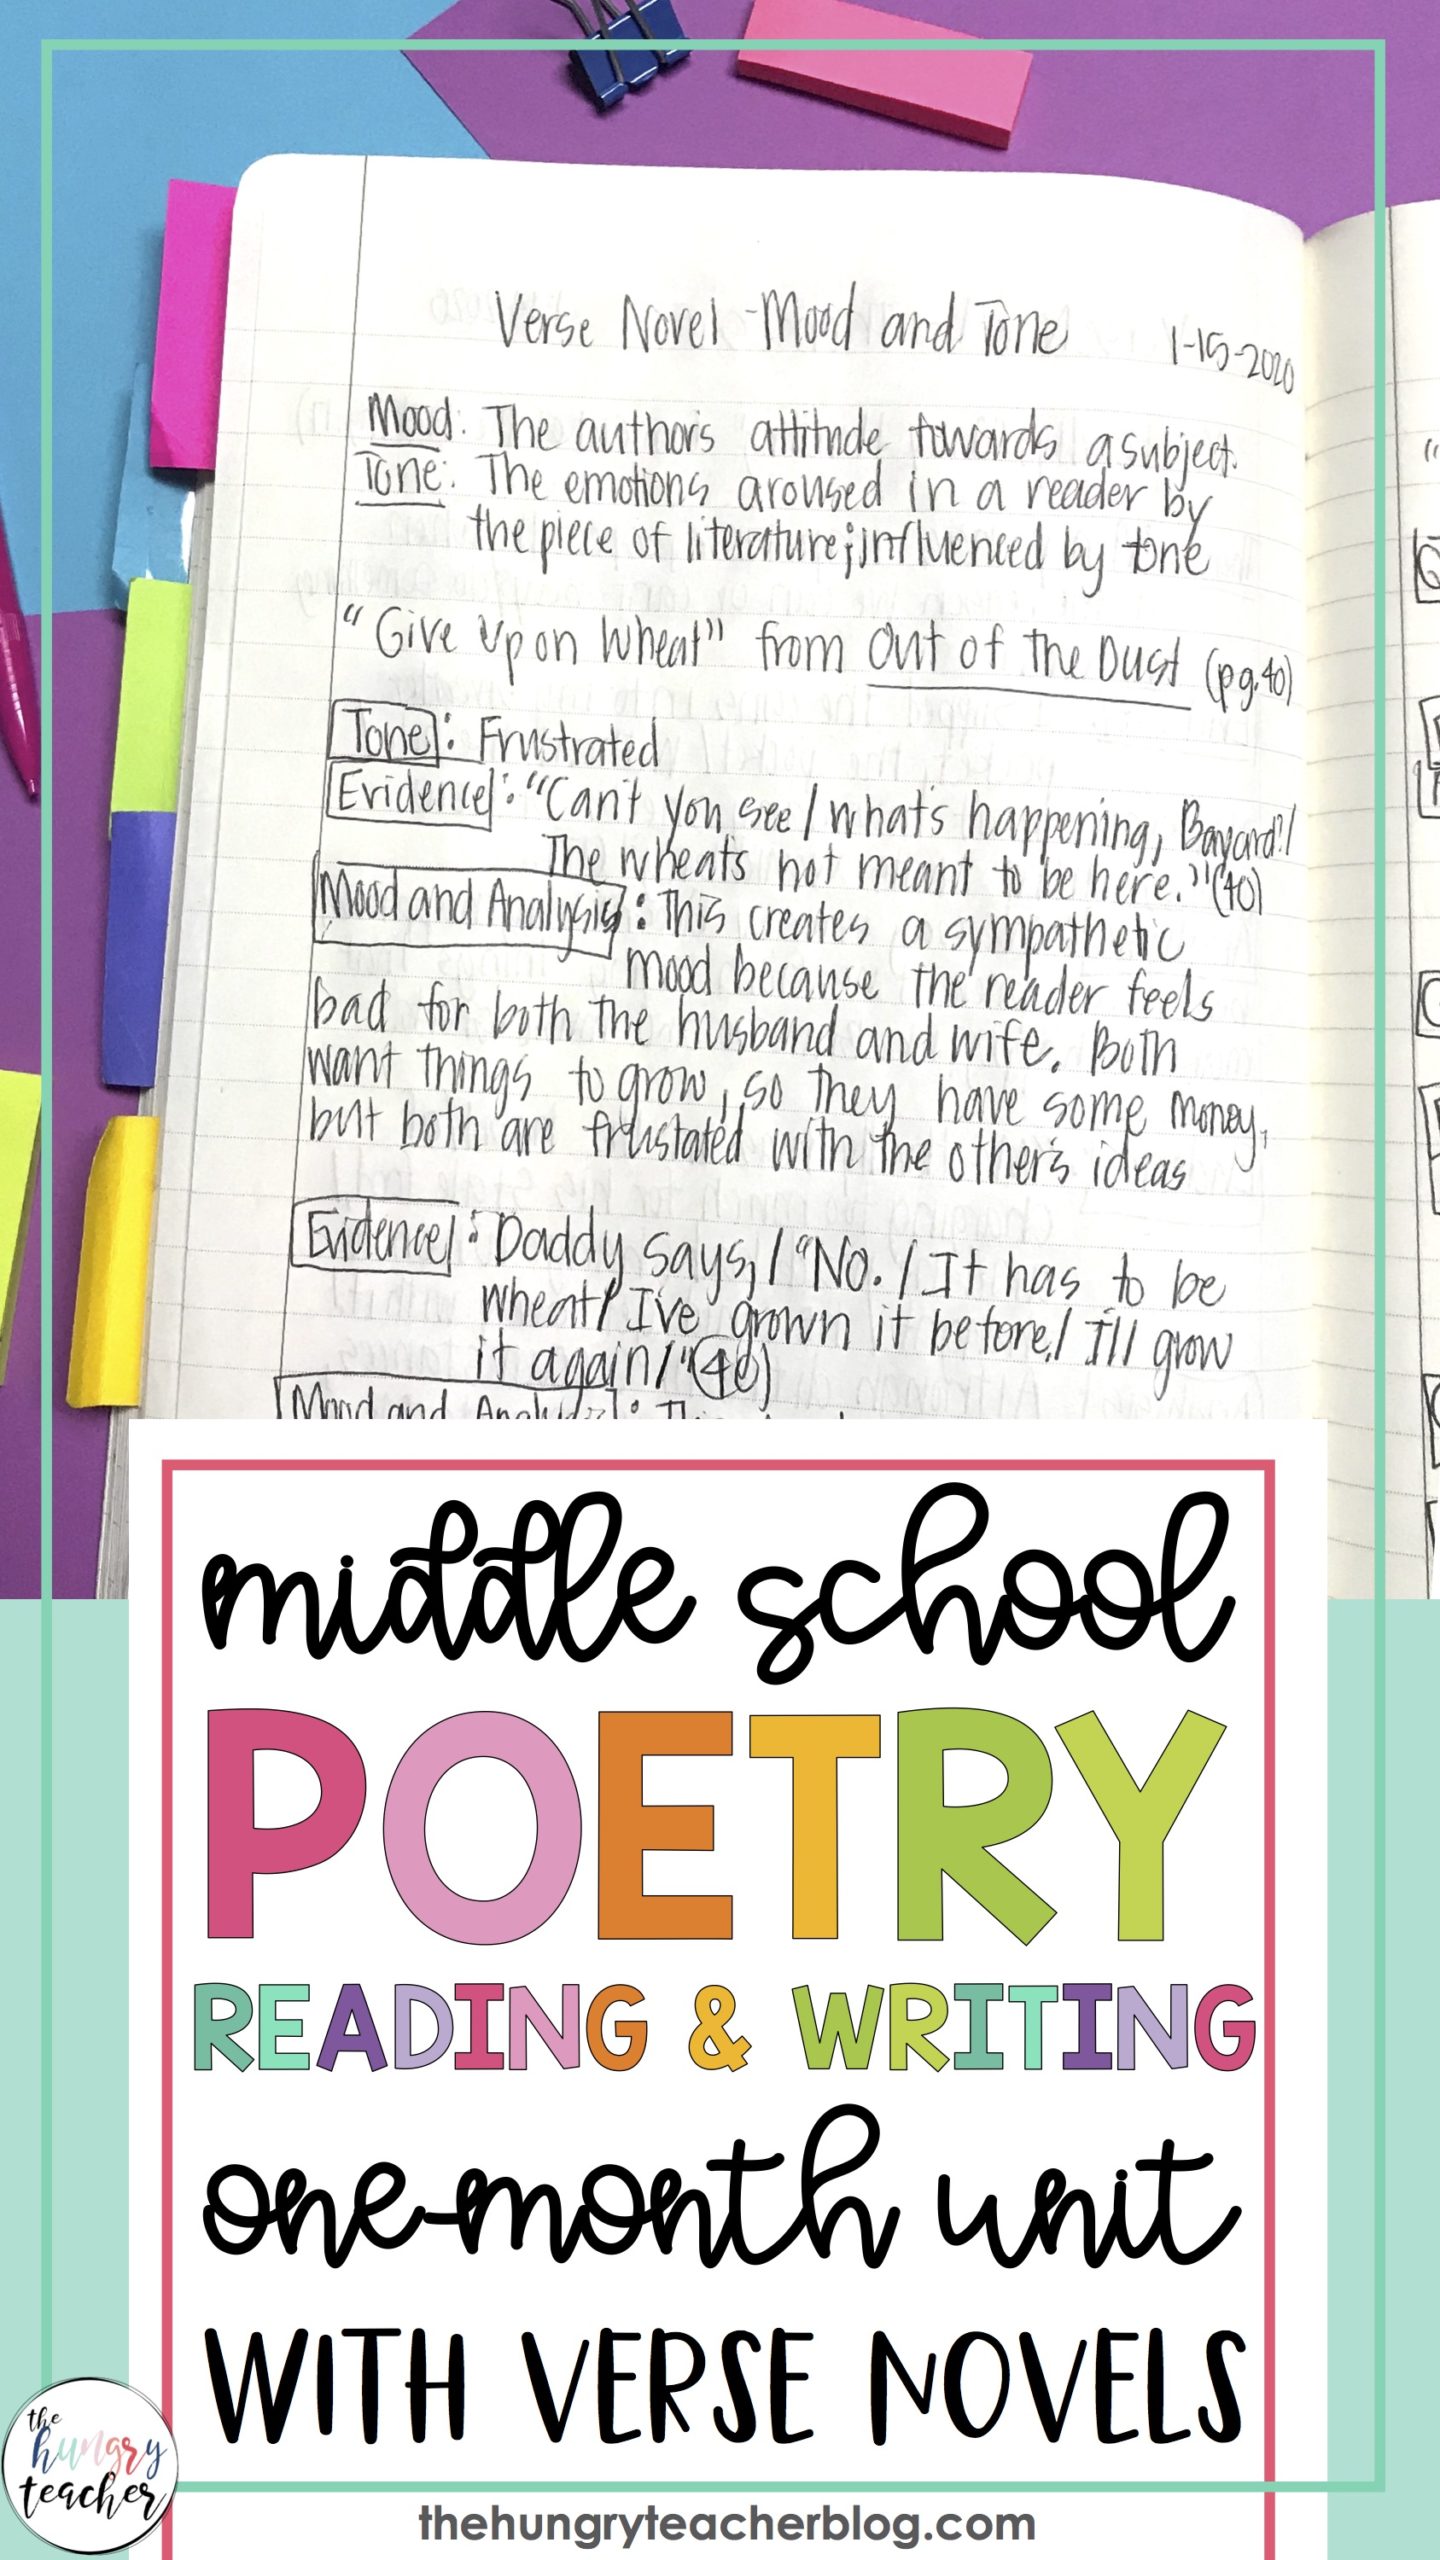 Verse Novel - Mood and Tone 1-15-2020
Mood: The author's attitude towards a subject.
Tone: The emotions aroused in a reader by
the piece of literature; influenced by tone
"Give Up on Wheat" from Out of the Dust (pg.40)
Tone: Frustrated
Evidence: "Can't you see/what's happening, Bayard?/
The wheat's not meant to be here." (40)
Mood and Analysis: This creates a sympathetic
mood because the reader feels
bad for both the husband and wife. Both
want things to grow, so they have some money,
but both are frustated with the other's ideas
Evidence: Daddy says,/"No./It has to be
wheat/I've grown it before,/I'll grow
it again/"(40)
Mood and Analysis: This
middle school
POETRY
READING & WRITING
one-month unit
WITH VERSE NOVELS
the
hungry
teacher
thehungryteacherblog.com